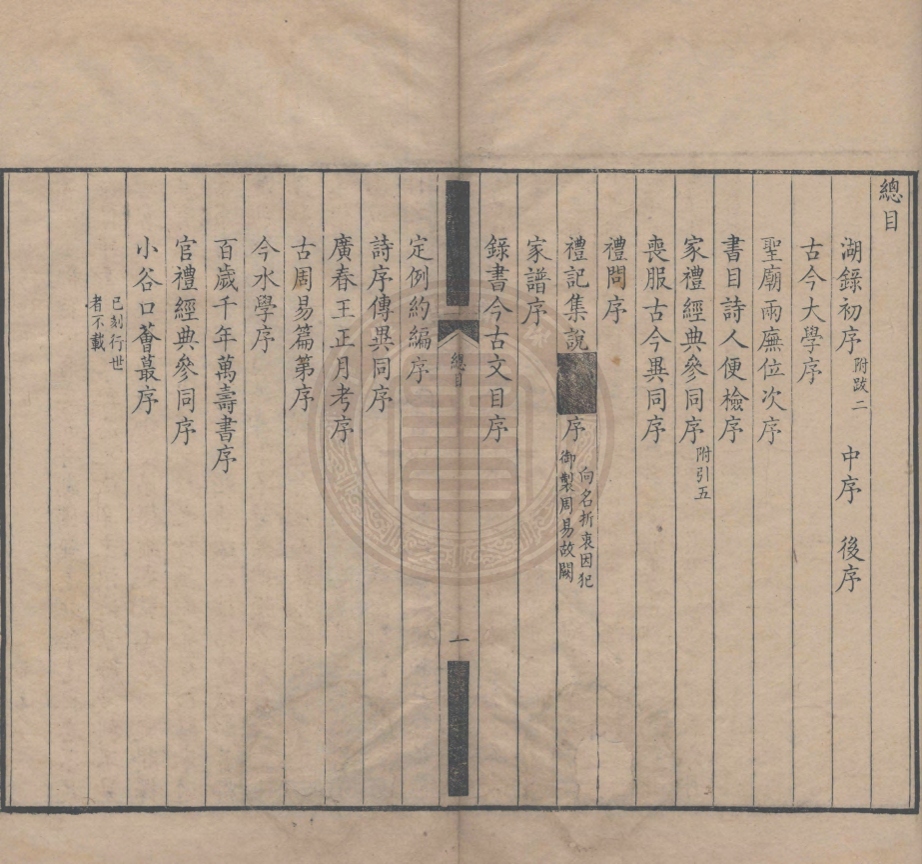 總目
湖錄初序 附跋二 中序 後序
古今大學序
聖廟兩廡位次序
書目詩人便檢序
家禮經典參同序 附引五
喪服古今異同序
禮問序
禮記集說 序 向名折衷因犯御製周易故闕
家譜序
錄書今古文目序
總目 一
定例約編序
詩序傳異同序
廣春王正月考序
古周易篇第序
今水學序
百歲千年萬壽書序
官禮經典參同序
小谷口薈蕞序
已刻行世
者不載